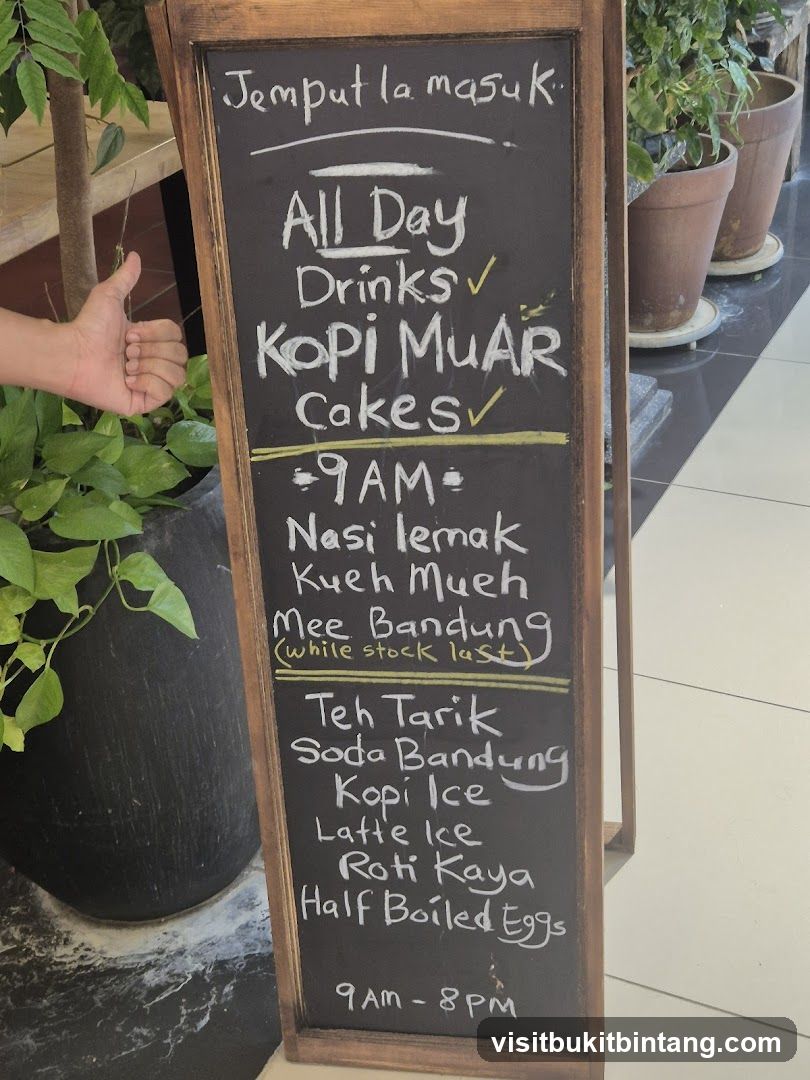 Jemput la masuk
All Day
Drinks ✓
KOPI MUAR
Cakes ✓
9AM
Nasi lemak
Kueh Mueh
Mee Bandung
(while stock last)
Teh Tarik
Soda Bandung
Kopi Ice
Latte Ice
Roti Kaya
Half Boiled Eggs
9AM - 8PM
visitbukitbintang.com